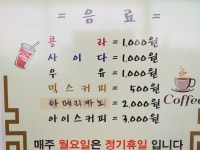 = 음 료 =
콜 라 = 1,000원
사 이 다 = 1,000원
우 유 = 1,000원
믹 스 커 피 = 500원
아 메 리 카 노 = 2,000원
아 이 스 커 피 = 3,000원
Coffee
매주 월요일은 정기휴일 입니다